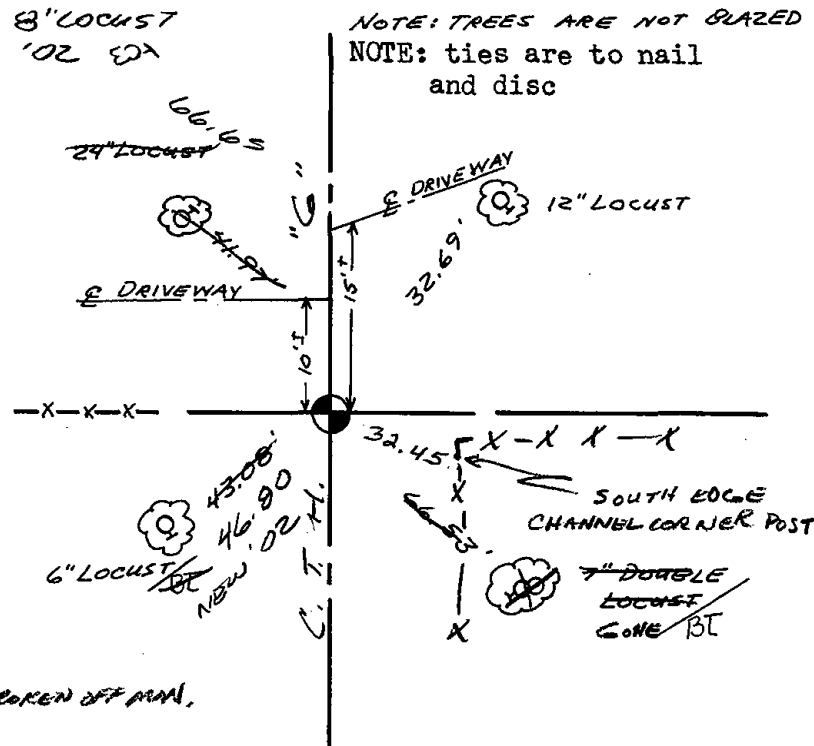 8" LOCUST
'02
NOTE: TREES ARE NOT BLAZED
NOTE: ties are to nail
and disc
66.65
24" LOCUST
41.97'
"G"
℄ DRIVEWAY
12" LOCUST
32.69'
15'±
℄ DRIVEWAY
10'±
X X X
32.45
X-X X-X
X
SOUTH EDGE
CHANNEL CORNER POST
43.08'
46.80
NEW '02
6" LOCUST/BT
C. T. H.
7" DOUBLE
LOCUST
GONE/BT
X
BROKEN OFF MON.